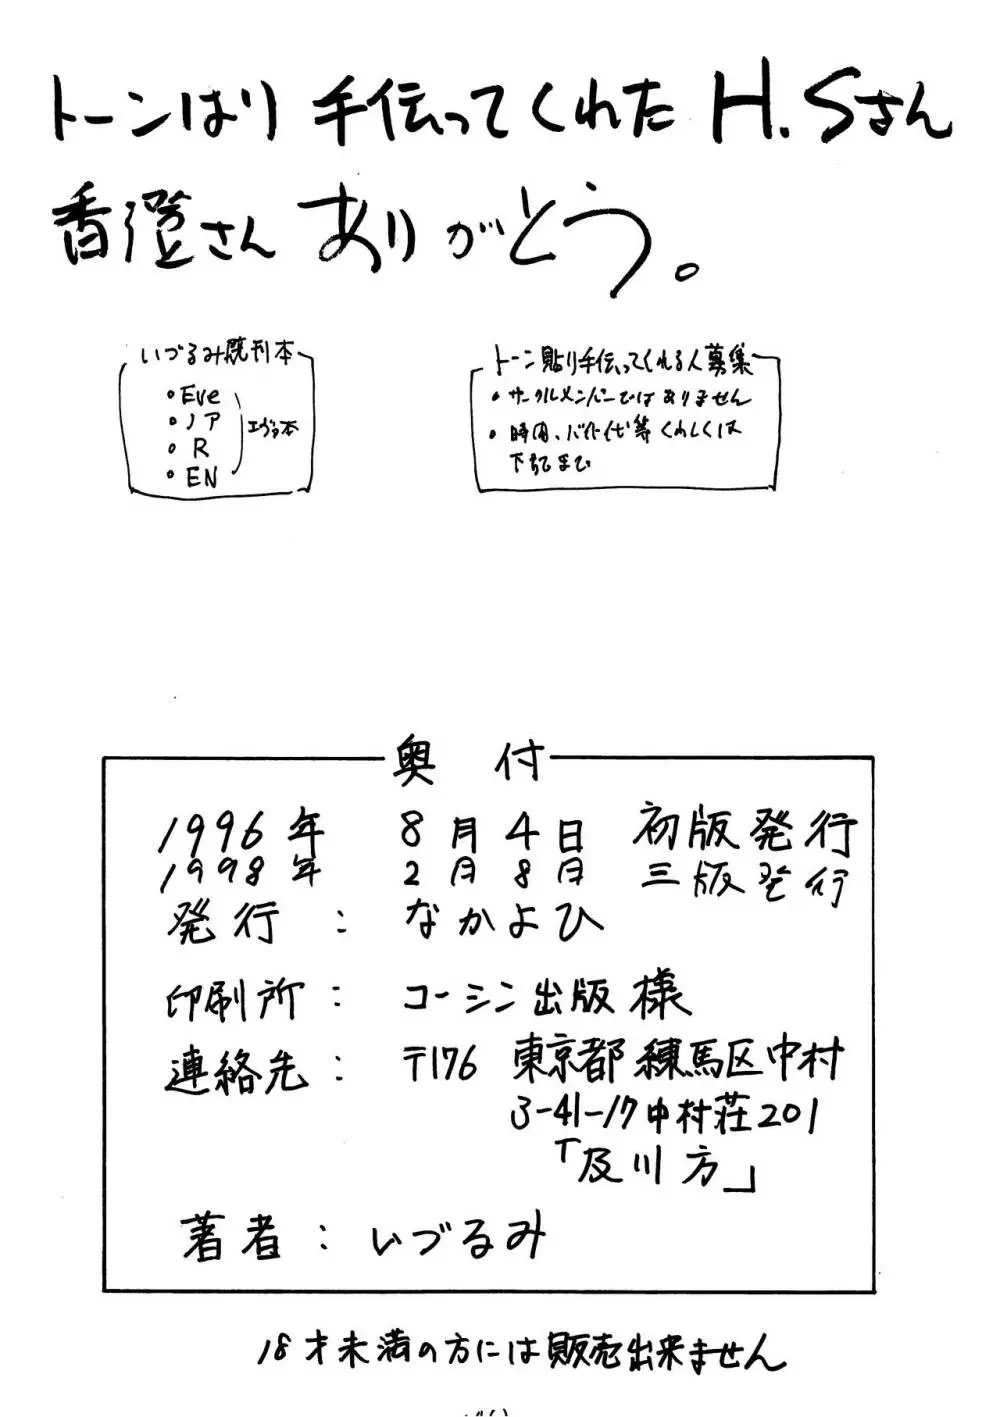 トーンはり 手伝ってくれた H.Sさん
香澄さん ありがとう。
いづるみ既刊本
• Eve
• ノア
• R
• EN
エヴァ本
トーン貼り手伝ってくれる人募集
• サークルメンバーではありません
• 時間、バイト代等くわしくは
下記まで
奥 付
1996年 8月4日 初版発行
1998年 2月8日 三版発行
発行 : なかよひ
印刷所 : コーシン出版 様
連絡先 : 〒176 東京都 練馬区中村
3-41-17 中村荘201
「及川方」
著者 : いづるみ
18才未満の方には販売出来ません